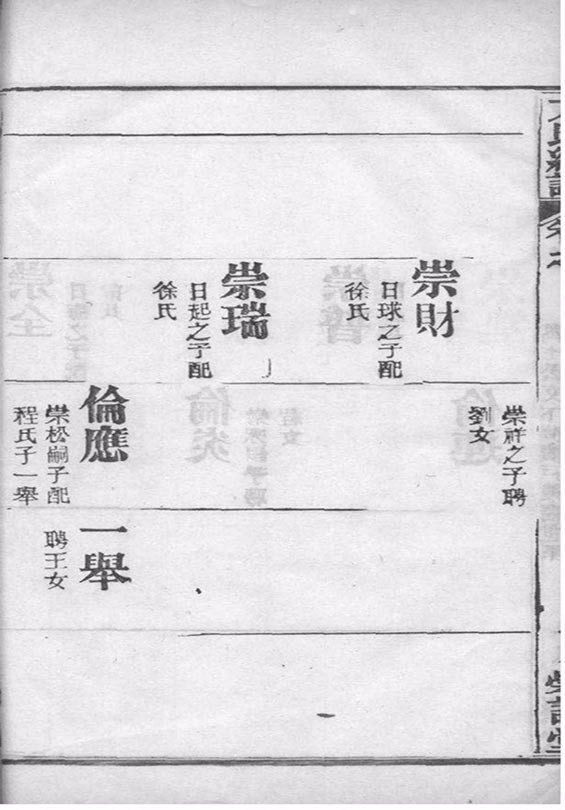 崇財
日球之子配
徐氏
崇瑞
日起之子配
徐氏
崇祥之子聘
劉女
倫應
崇松嗣子配
程氏子一舉
一舉
聘王女